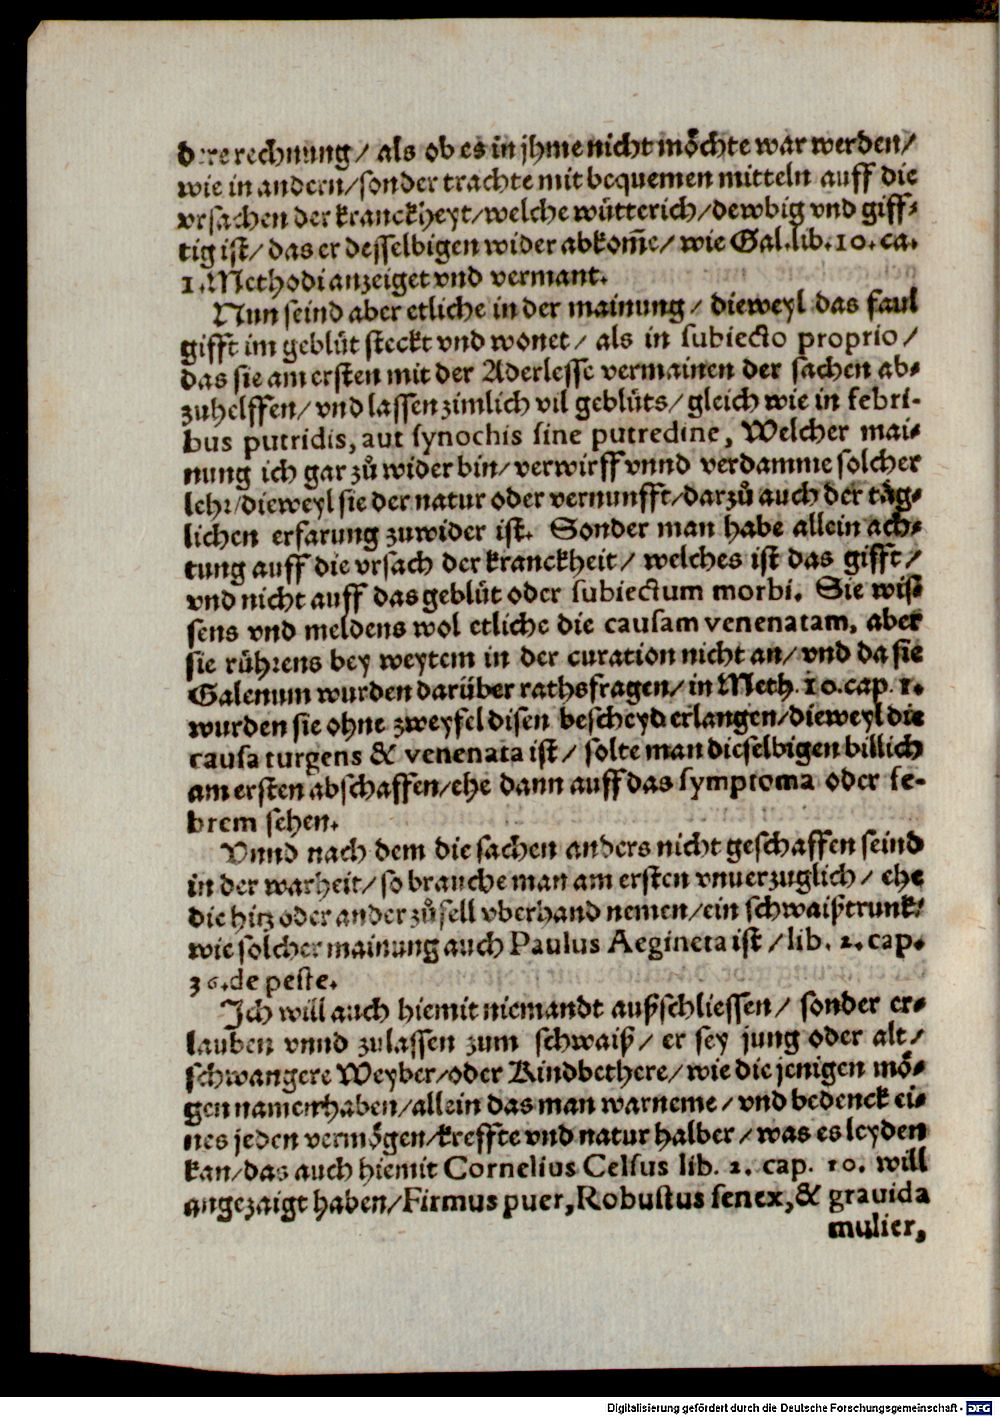 dere rechnung / als ob es in jhme nicht möchte war werden /
wie in andern / sonder trachte mit bequemen mitteln auff die
vrsachen der kranckheyt / welche wütterich / dewbig vnd giff⸗
tig ist / das er desselbigen wider abkom̃e / wie Gal. lib. 10. ca.
1. Methodi anzeiget vnd vermant.
Nun seind aber etliche in der mainung / dieweyl das faul
gifft im geblüt steckt vnd wonet / als in subiecto proprio /
das sie am ersten mit der Aderlesse vermainen der sachen ab⸗
zuhelffen / vnd lassen zimlich vil geblüts / gleich wie in febri-
bus putridis, aut synochis sine putredine, Welcher mai⸗
nung ich gar zů wider bin / verwirff vnnd verdamme solcher
lehr / dieweyl sie der natur oder vernunfft / darzů auch der täg⸗
lichen erfarung zuwider ist. Sonder man habe allein ach⸗
tung auff die vrsach der kranckheit / welches ist das gifft /
vnd nicht auff das geblüt oder subiectum morbi. Sie wis⸗
sens vnd meldens wol etliche die causam venenatam, aber
sie rührens bey weytem in der curation nicht an / vnd da sie
Galenum wurden darüber rathsfragen / in Meth. 10. cap. 1.
wurden sie ohne zweyfel disen bescheyd erlangen / dieweyl die
causa turgens & venenata ist / solte man dieselbigen billich
am ersten abschaffen / ehe dann auff das symptoma oder fe-
brem sehen.
Vnnd nach dem die sachen anders nicht geschaffen seind
in der warheit / so brauche man am ersten vnuerzuglich / ehe
die hitz oder ander zůfell vberhand nemen / ein schwaißtrunk /
wie solcher mainung auch Paulus Aegineta ist / lib. 2. cap.
36. de peste.
Ich will auch hiemit niemandt außschliessen / sonder er⸗
lauben vnnd zulassen zum schwaiß / er sey jung oder alt /
schwangere Weyber / oder Kindbethere / wie die jenigen mö⸗
gen namen haben / allein das man warneme / vnd bedenck ei⸗
nes jeden vermögen / kreffte vnd natur halber / was es leyden
kan / das auch hiemit Cornelius Celsus lib. 2. cap. 10. will
angezaigt haben / Firmus puer, Robustus senex, & grauida
mulier,
Digitalisierung gefördert durch die Deutsche Forschungsgemeinschaft - DFG